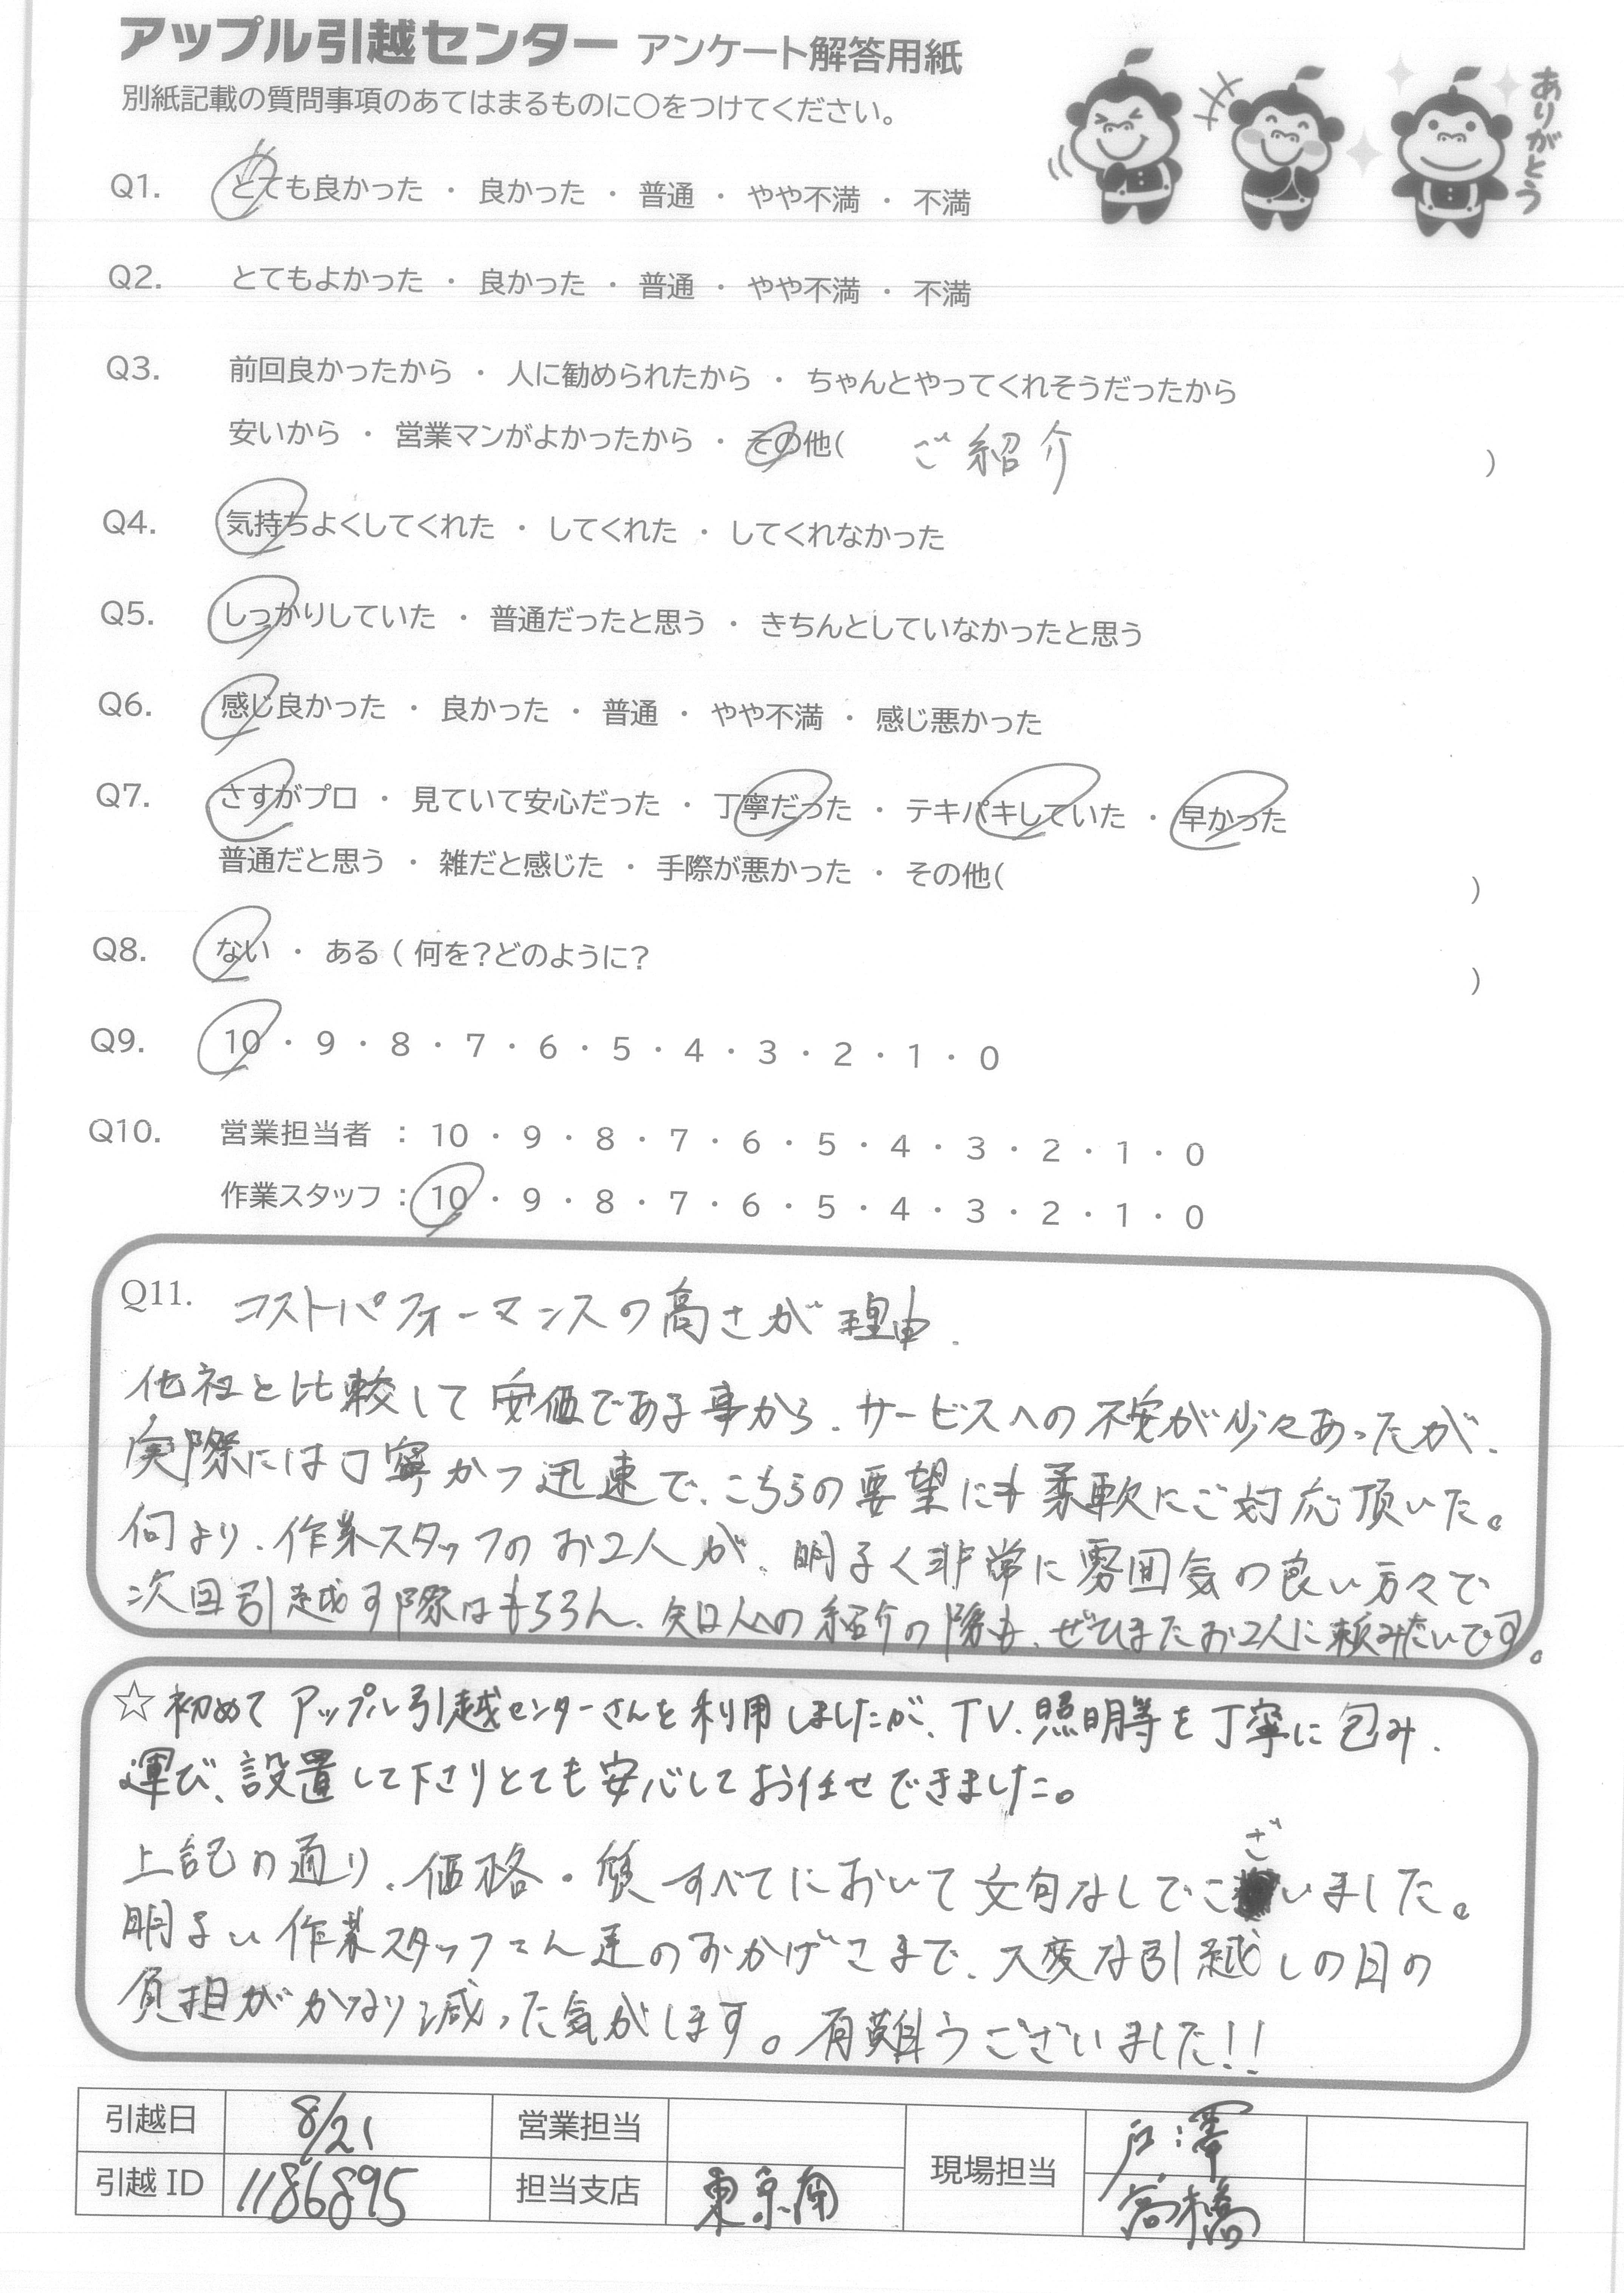 アップル引越センター アンケート解答用紙
別紙記載の質問事項のあてはまるものに○をつけてください。
ありがとう
Q1. とても良かった ・ 良かった ・ 普通 ・ やや不満 ・ 不満
Q2. とてもよかった ・ 良かった ・ 普通 ・ やや不満 ・ 不満
Q3. 前回良かったから ・ 人に勧められたから ・ ちゃんとやってくれそうだったから
安いから ・ 営業マンがよかったから ・ その他( ご紹介 )
Q4. 気持ちよくしてくれた ・ してくれた ・ してくれなかった
Q5. しっかりしていた ・ 普通だったと思う ・ きちんとしていなかったと思う
Q6. 感じ良かった ・ 良かった ・ 普通 ・ やや不満 ・ 感じ悪かった
Q7. さすがプロ ・ 見ていて安心だった ・ 丁寧だった ・ テキパキしていた ・ 早かった
普通だと思う ・ 雑だと感じた ・ 手際が悪かった ・ その他( )
Q8. ない ・ ある ( 何を?どのように? )
Q9. 10 ・ 9 ・ 8 ・ 7 ・ 6 ・ 5 ・ 4 ・ 3 ・ 2 ・ 1 ・ 0
Q10. 営業担当者 : 10 ・ 9 ・ 8 ・ 7 ・ 6 ・ 5 ・ 4 ・ 3 ・ 2 ・ 1 ・ 0
作業スタッフ : 10 ・ 9 ・ 8 ・ 7 ・ 6 ・ 5 ・ 4 ・ 3 ・ 2 ・ 1 ・ 0
Q11. コストパフォーマンスの高さが理由.
他社と比較して安価である事から、サービスへの不安が少々あったが、
実際には丁寧かつ迅速で、こちらの要望にも柔軟にご対応頂いた。
何より、作業スタッフのお2人が、明るく非常に雰囲気の良い方々で
次回引越す際はもちろん、知人への紹介の際も、ぜひまたお2人に頼みたいです。
☆初めてアップル引越センターさんを利用しましたが、TV、照明等を丁寧に包み、
運び、設置して下さりとても安心してお任せできました。
上記の通り、価格・質すべてにおいて文句なしでございました。
明るい作業スタッフさん達のおかげさまで、大変な引越しの日の
負担がかなり減った気がします。有難うございました!!
引越日 8/21 営業担当 現場担当 戸澤
引越ID 1186895 担当支店 東京南 高橋